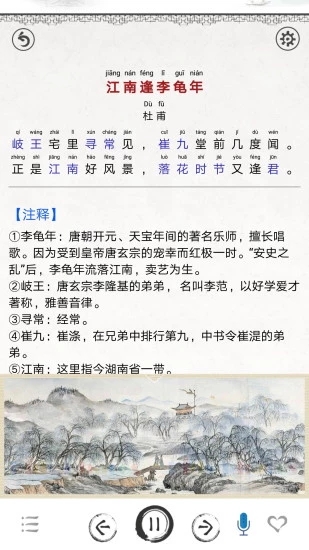 jiāng nán féng lǐ guī nián
江南逢李龟年
Dù fǔ
杜甫
qí wáng zhái lǐ xún cháng jiàn cuī jiǔ táng qián jǐ dù wén
岐王宅里寻常见，崔九堂前几度闻。
zhèng shì jiāng nán hǎo fēng jǐng luò huā shí jié yòu féng jūn
正是江南好风景，落花时节又逢君。
【注释】
①李龟年：唐朝开元、天宝年间的著名乐师，擅长唱
歌。因为受到皇帝唐玄宗的宠幸而红极一时。“安史之
乱”后，李龟年流落江南，卖艺为生。
②岐王：唐玄宗李隆基的弟弟， 名叫李范，以好学爱才
著称，雅善音律。
③寻常：经常。
④崔九：崔涤，在兄弟中排行第九，中书令崔湜的弟
弟。
⑤江南：这里指今湖南省一带。